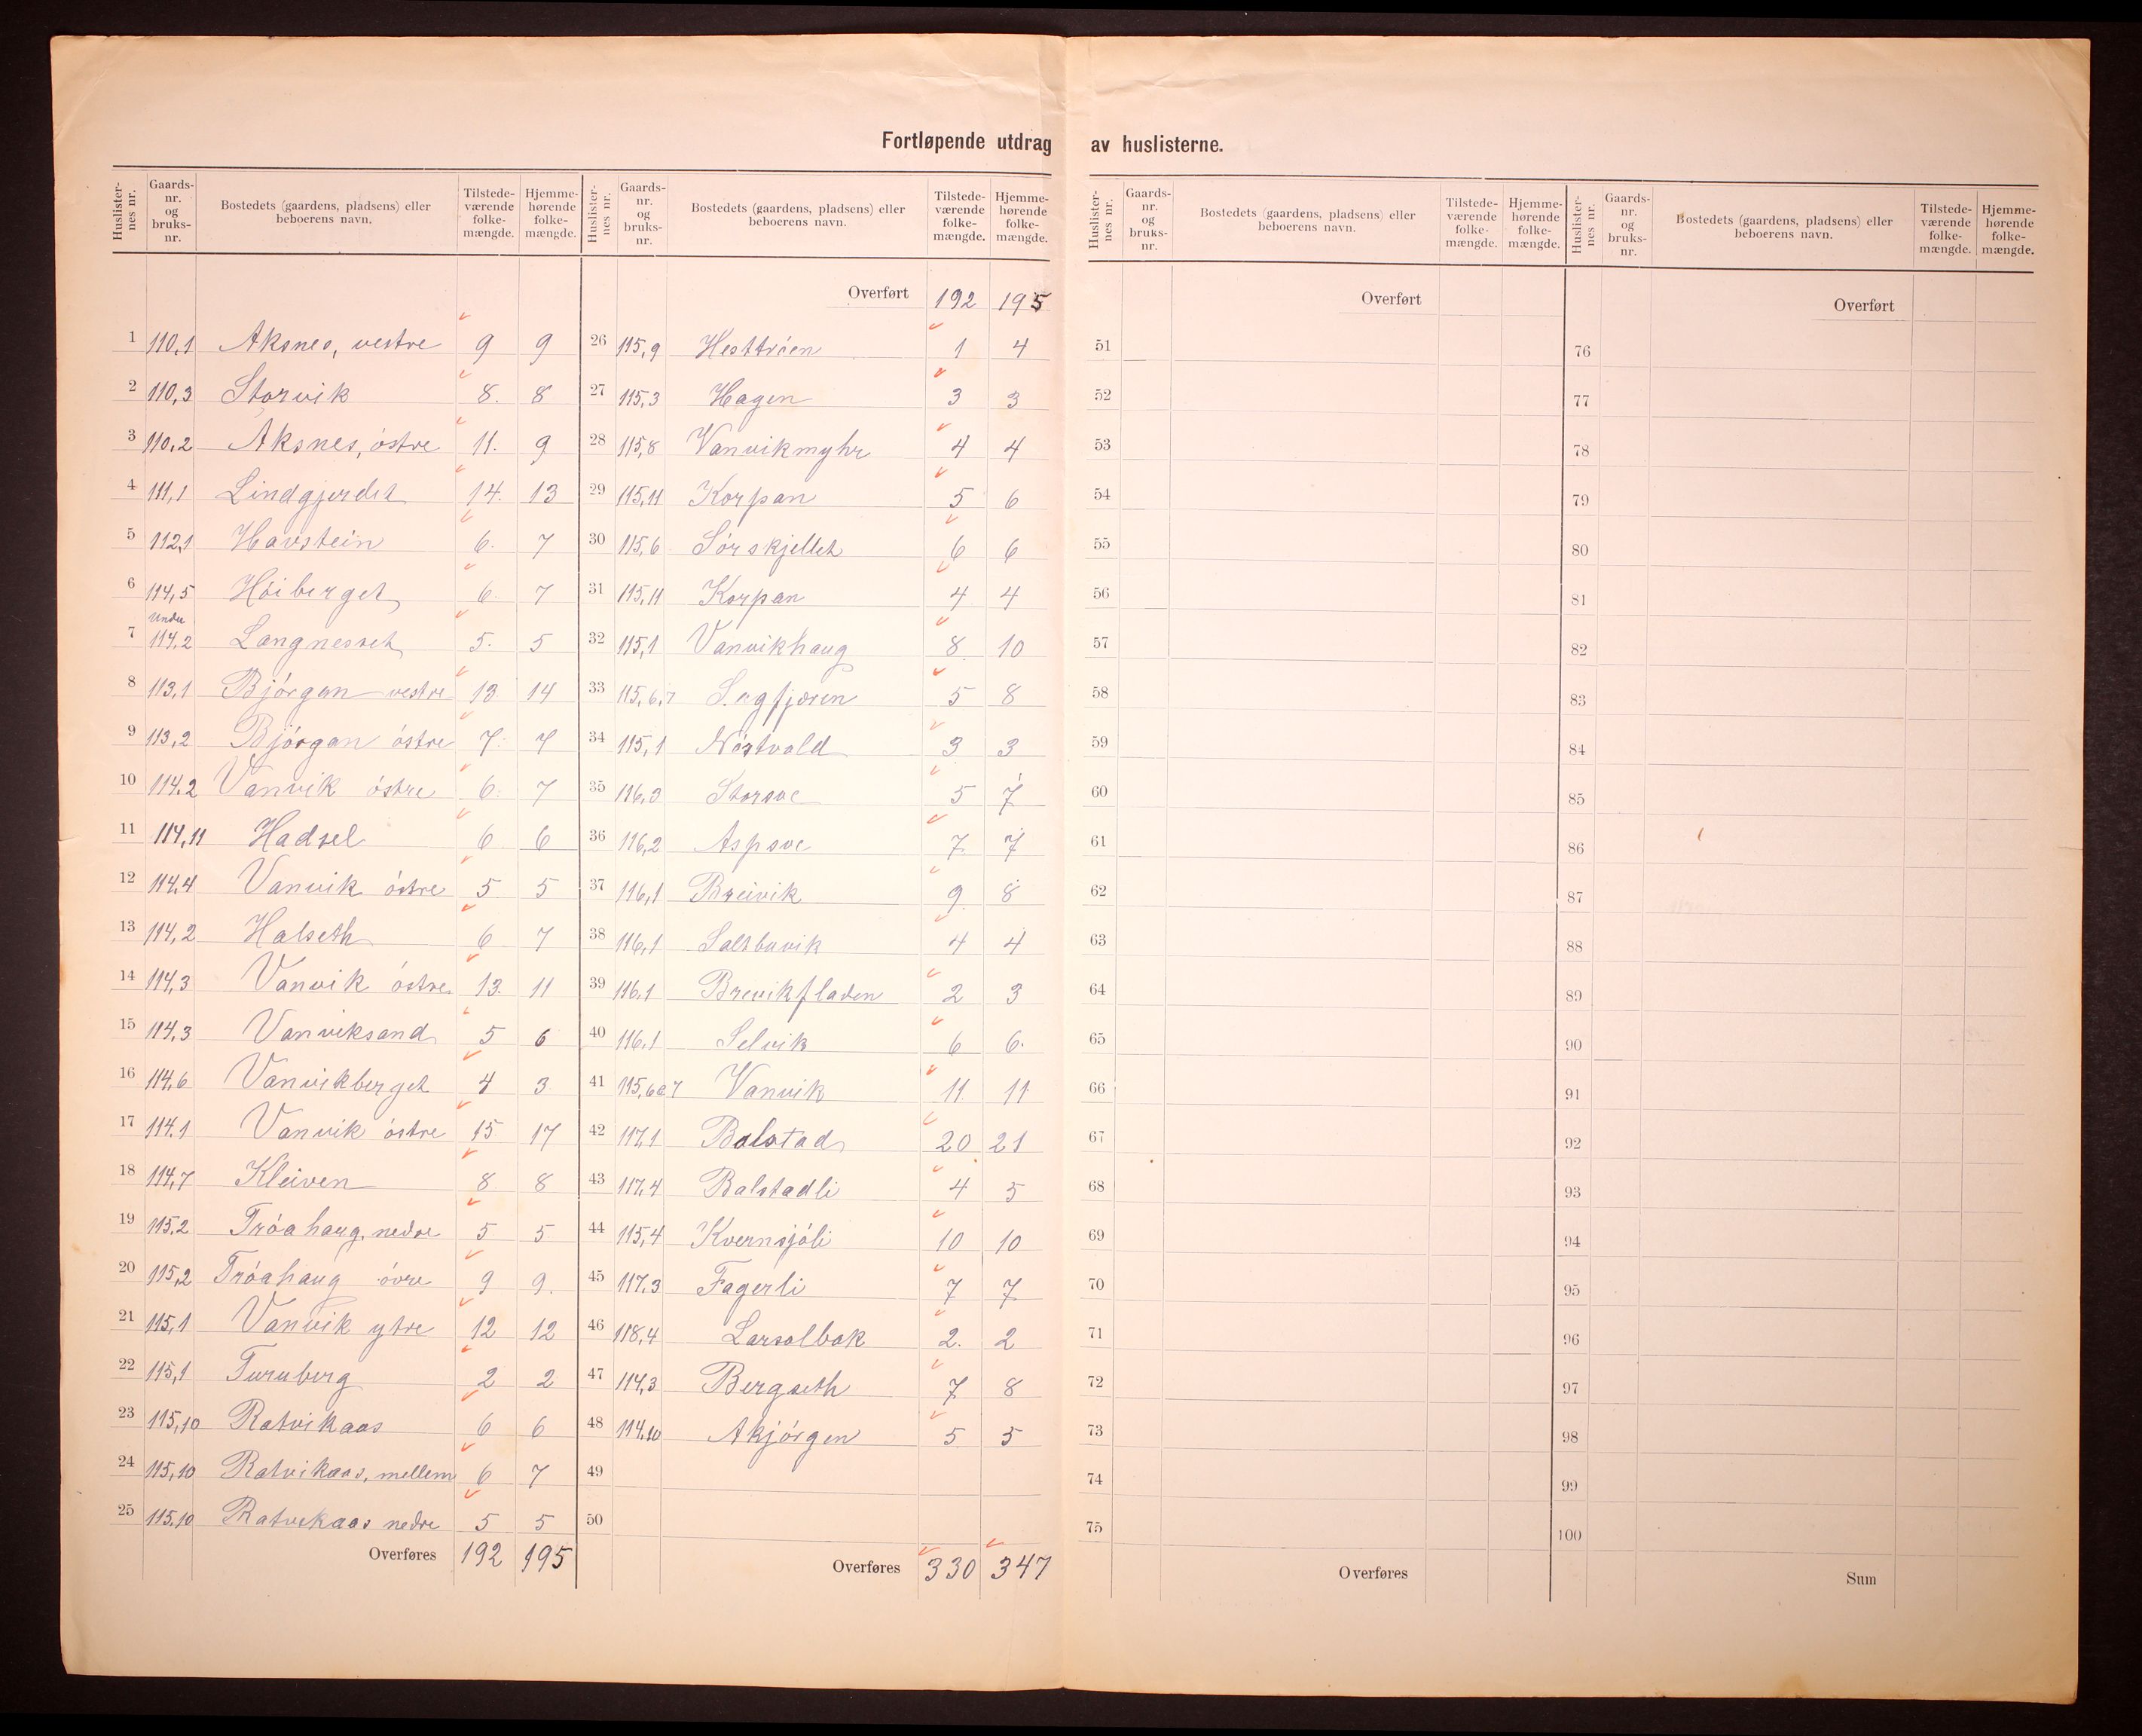 Fortløpende utdrag av huslisterne.
Huslister-nes nr. Gaards-nr. og bruks-nr. Bostedets (gaardens, pladsens) eller beboerens navn. Tilstede-værende folke-mængde. Hjemme-hørende folke-mængde.
1 110,1 Aksnes, vestre 9 9
2 110,3 Storvik 8. 8
3 110,2 Aksnes, östre 11. 9
4 111,1 Lindgjerdet 14. 13
5 112,1 Havstein 6. 7
6 114,5 Höiberget 6. 7
7 under 114.2 Langnesset 5. 5
8 113,1 Björgan vestre 13 14
9 113,2 Björgan östre 7. 7
10 114.2 Vanvik östre 6. 7
11 114,11 Hadsel 6 6
12 114,4 Vanvik östre 5 5
13 114,2 Halseth 6 7
14 114,3 Vanvik östre 13. 11
15 114,3 Vanviksand 5 6
16 114,6 Vanvikberget 4 3
17 114.1 Vanvik östre 15 17
18 114,7 Kleiven 8 8
19 115.2 Tröahaug, nedre 5 5
20 115,2 Tröahaug övre 9 9.
21 115,1 Vanvik ytre 12 12
22 115,1 Turuberg 2 2
23 115,10 Ratvikaas 6 6
24 115,10 Ratvikaas, mellem 6 7
25 115.10 Ratvikaas nedre 5 5
Overføres 192 195
Huslister-nes nr. Gaards-nr. og bruks-nr. Bostedets (gaardens, pladsens) eller beboerens navn. Tilstede-værende folke-mængde. Hjemme-hørende folke-mængde.
Overført 192 195
26 115,9 Hesttröen 1 4
27 115,3 Hagen 3 3
28 115,8 Vanvikmyhr 4 4
29 115,11 Korpan 5 6
30 115,6 Sörskjellet 6 6
31 115,11 Korpan 4 4
32 115,1 Vanvikhaug 8. 10
33 115,6,7 Sagfjæren 5 8
34 115,1 Nöstvold 3 3
35 116,3 Storsve 5 7
36 116,2 Aspsve 7. 7
37 116,1 Breivik 9. 8
38 116,1 Saltbuvik 4 4
39 116.1 Brevikfladen 2 3
40 116.1 Selvik 6 6.
41 115,6a7 Vanvik 11 11
42 117,1 Balstad 20 21
43 117,4 Balstadli 4 5
44 115,4 Kvernsjöli 10 10
45 117.3 Fagerli 7 7
46 118,4 Larsolbak 2. 2
47 114,3 Bergseth 7 8
48 114.10 Akjörgen 5 5
49
50
Overføres 330 347
Huslister-nes nr. Gaards-nr. og bruks-nr. Bostedets (gaardens, pladsens) eller beboerens navn. Tilstede-værende folke-mængde. Hjemme-hørende folke-mængde.
Overført
51
52
53
54
55
56
57
58
59
60
61
62
63
64
65
66
67
68
69
70
71
72
73
74
75
Overføres
Huslister-nes nr. Gaards-nr. og bruks-nr. Bostedets (gaardens, pladsens) eller beboerens navn. Tilstede-værende folke-mængde. Hjemme-hørende folke-mængde.
Overført
76
77
78
79
80
81
82
83
84
85
86
87
88
89
90
91
92
93
94
95
96
97
98
99
100
Sum